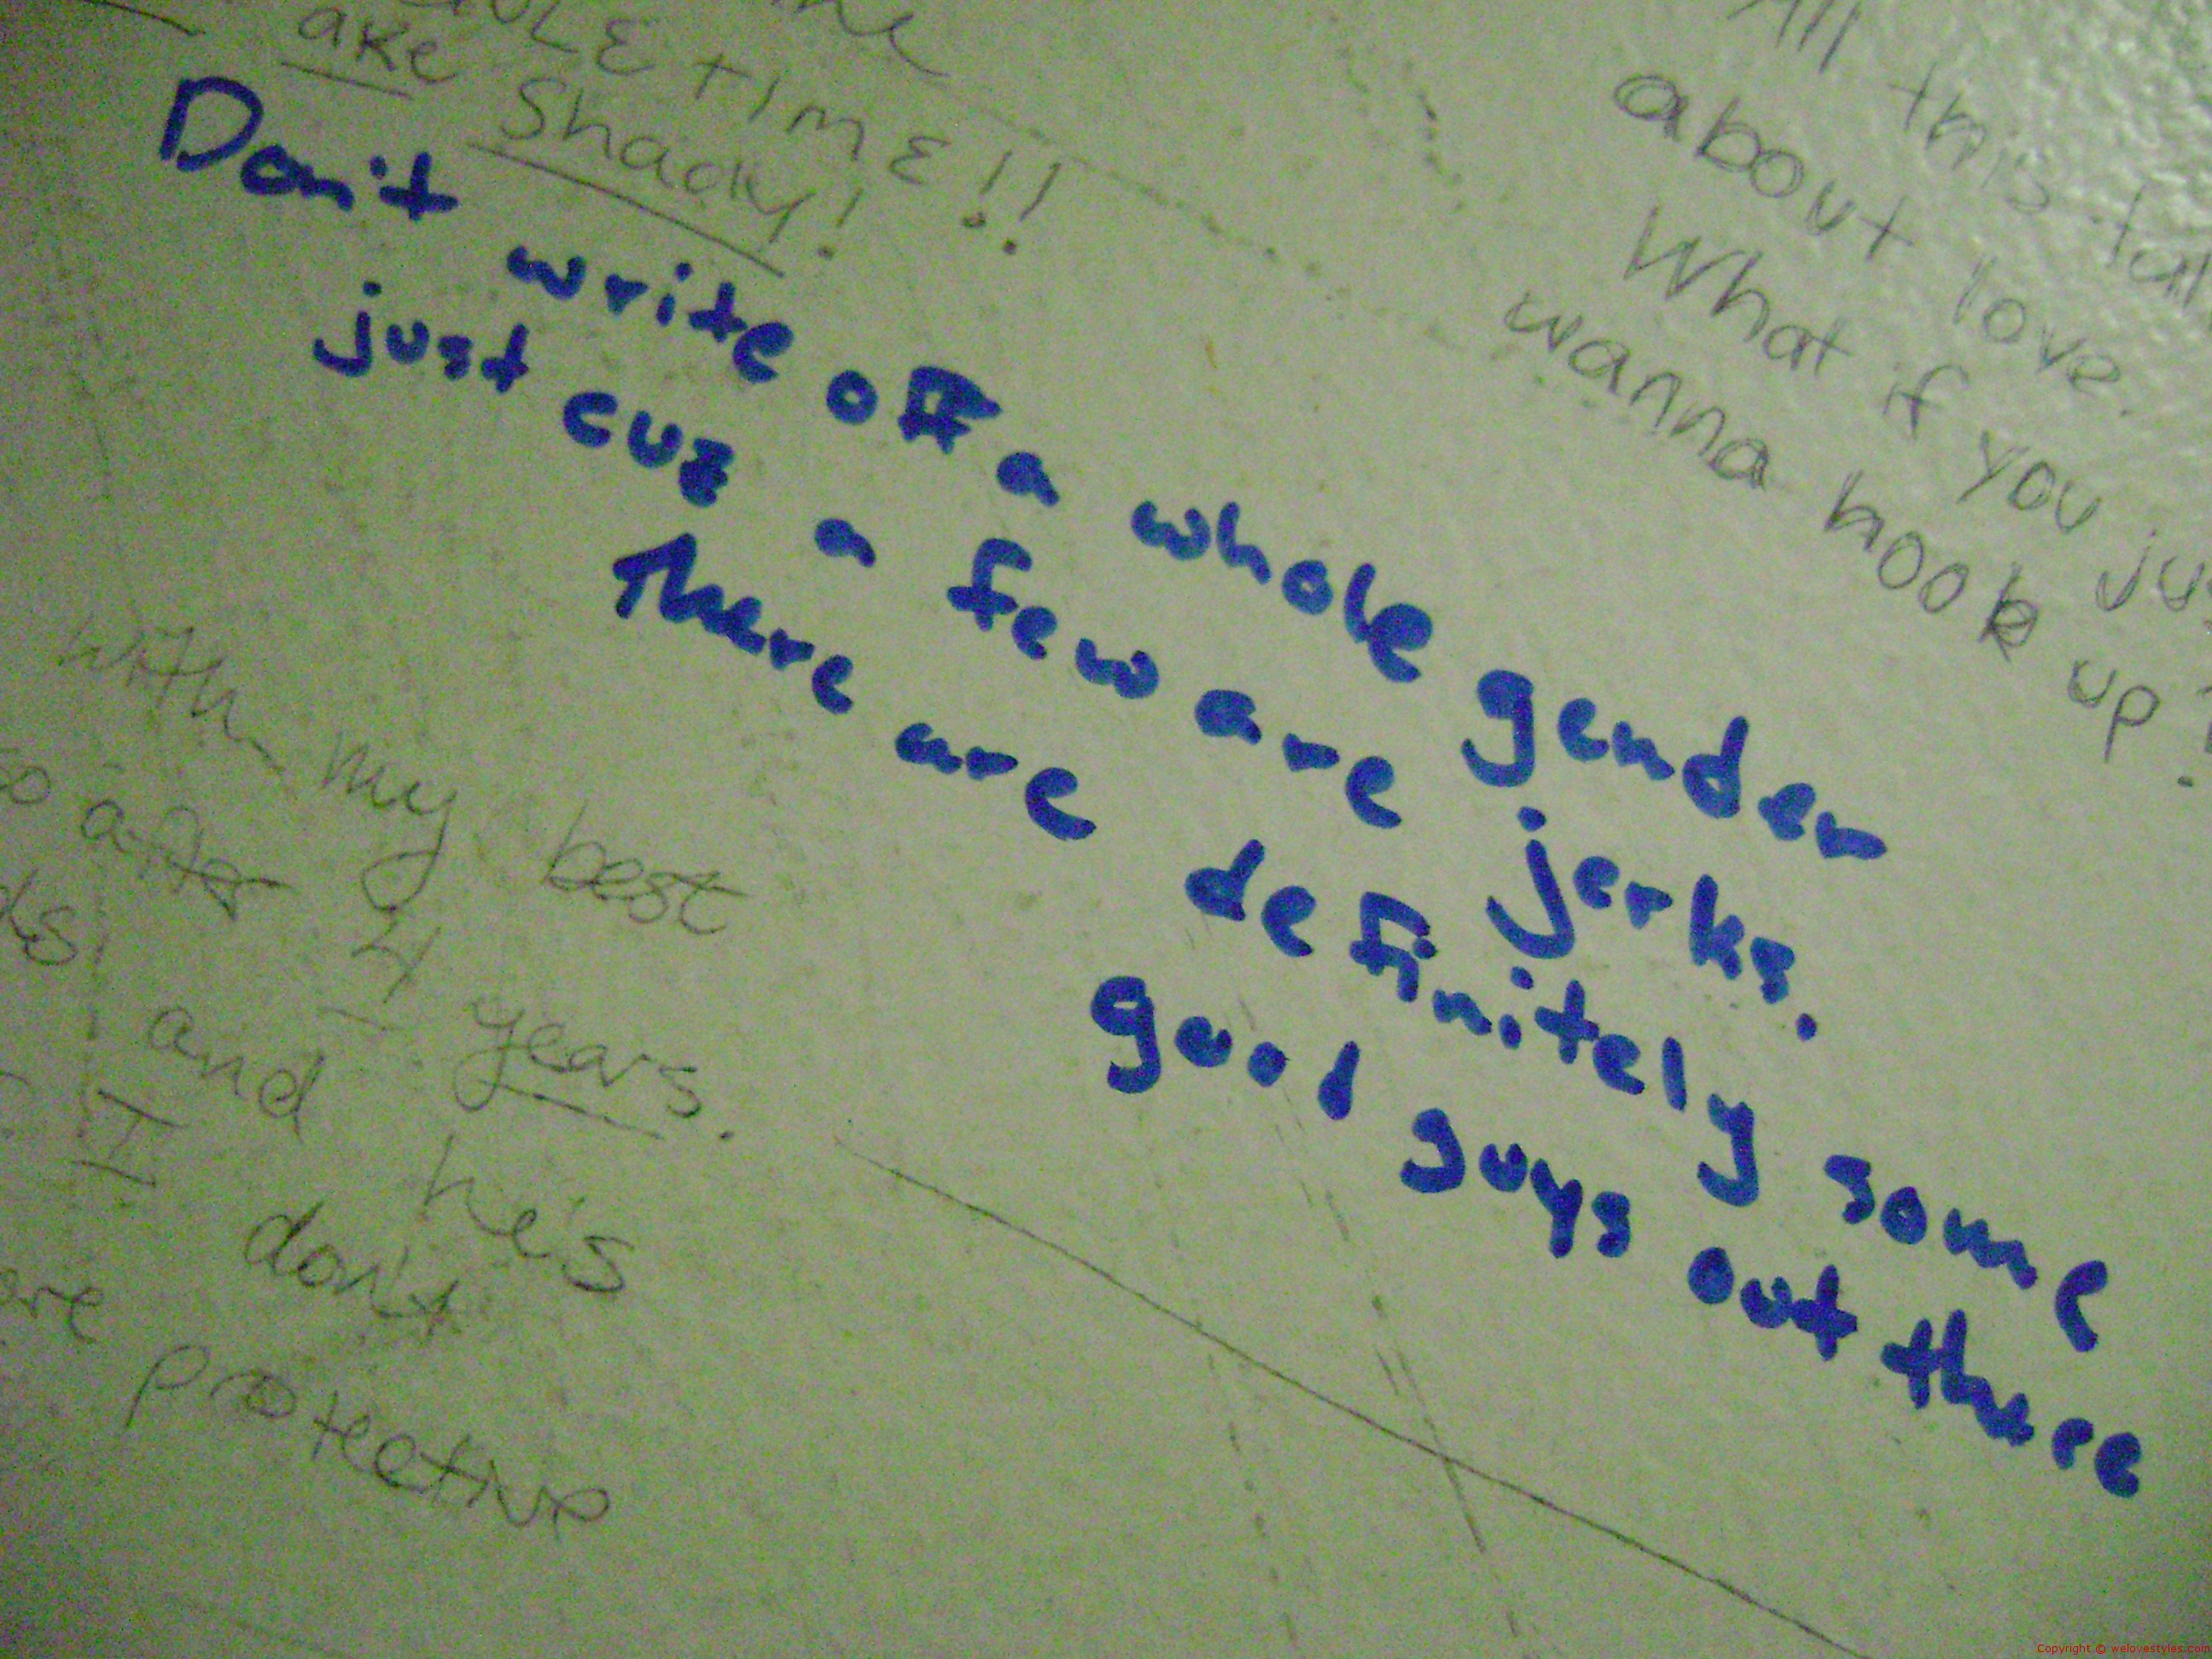 ake Shady!
TIME!!
Don't write off a whole gender
just cuz a few are jerks.
There are definitely some
good guys out there
All this
about love.
What if you
wanna hook up?
with my best
after 4 years.
and he's
I don't
protective
Copyright © welovestyles.com